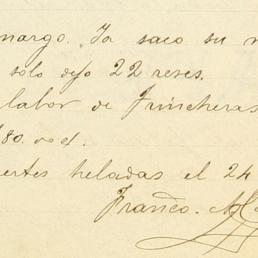 margo. Ya saco su
solo dejo 22 reses.
labor de Trincheras
80. oo d.
ertes heladas el 24
Franco. M